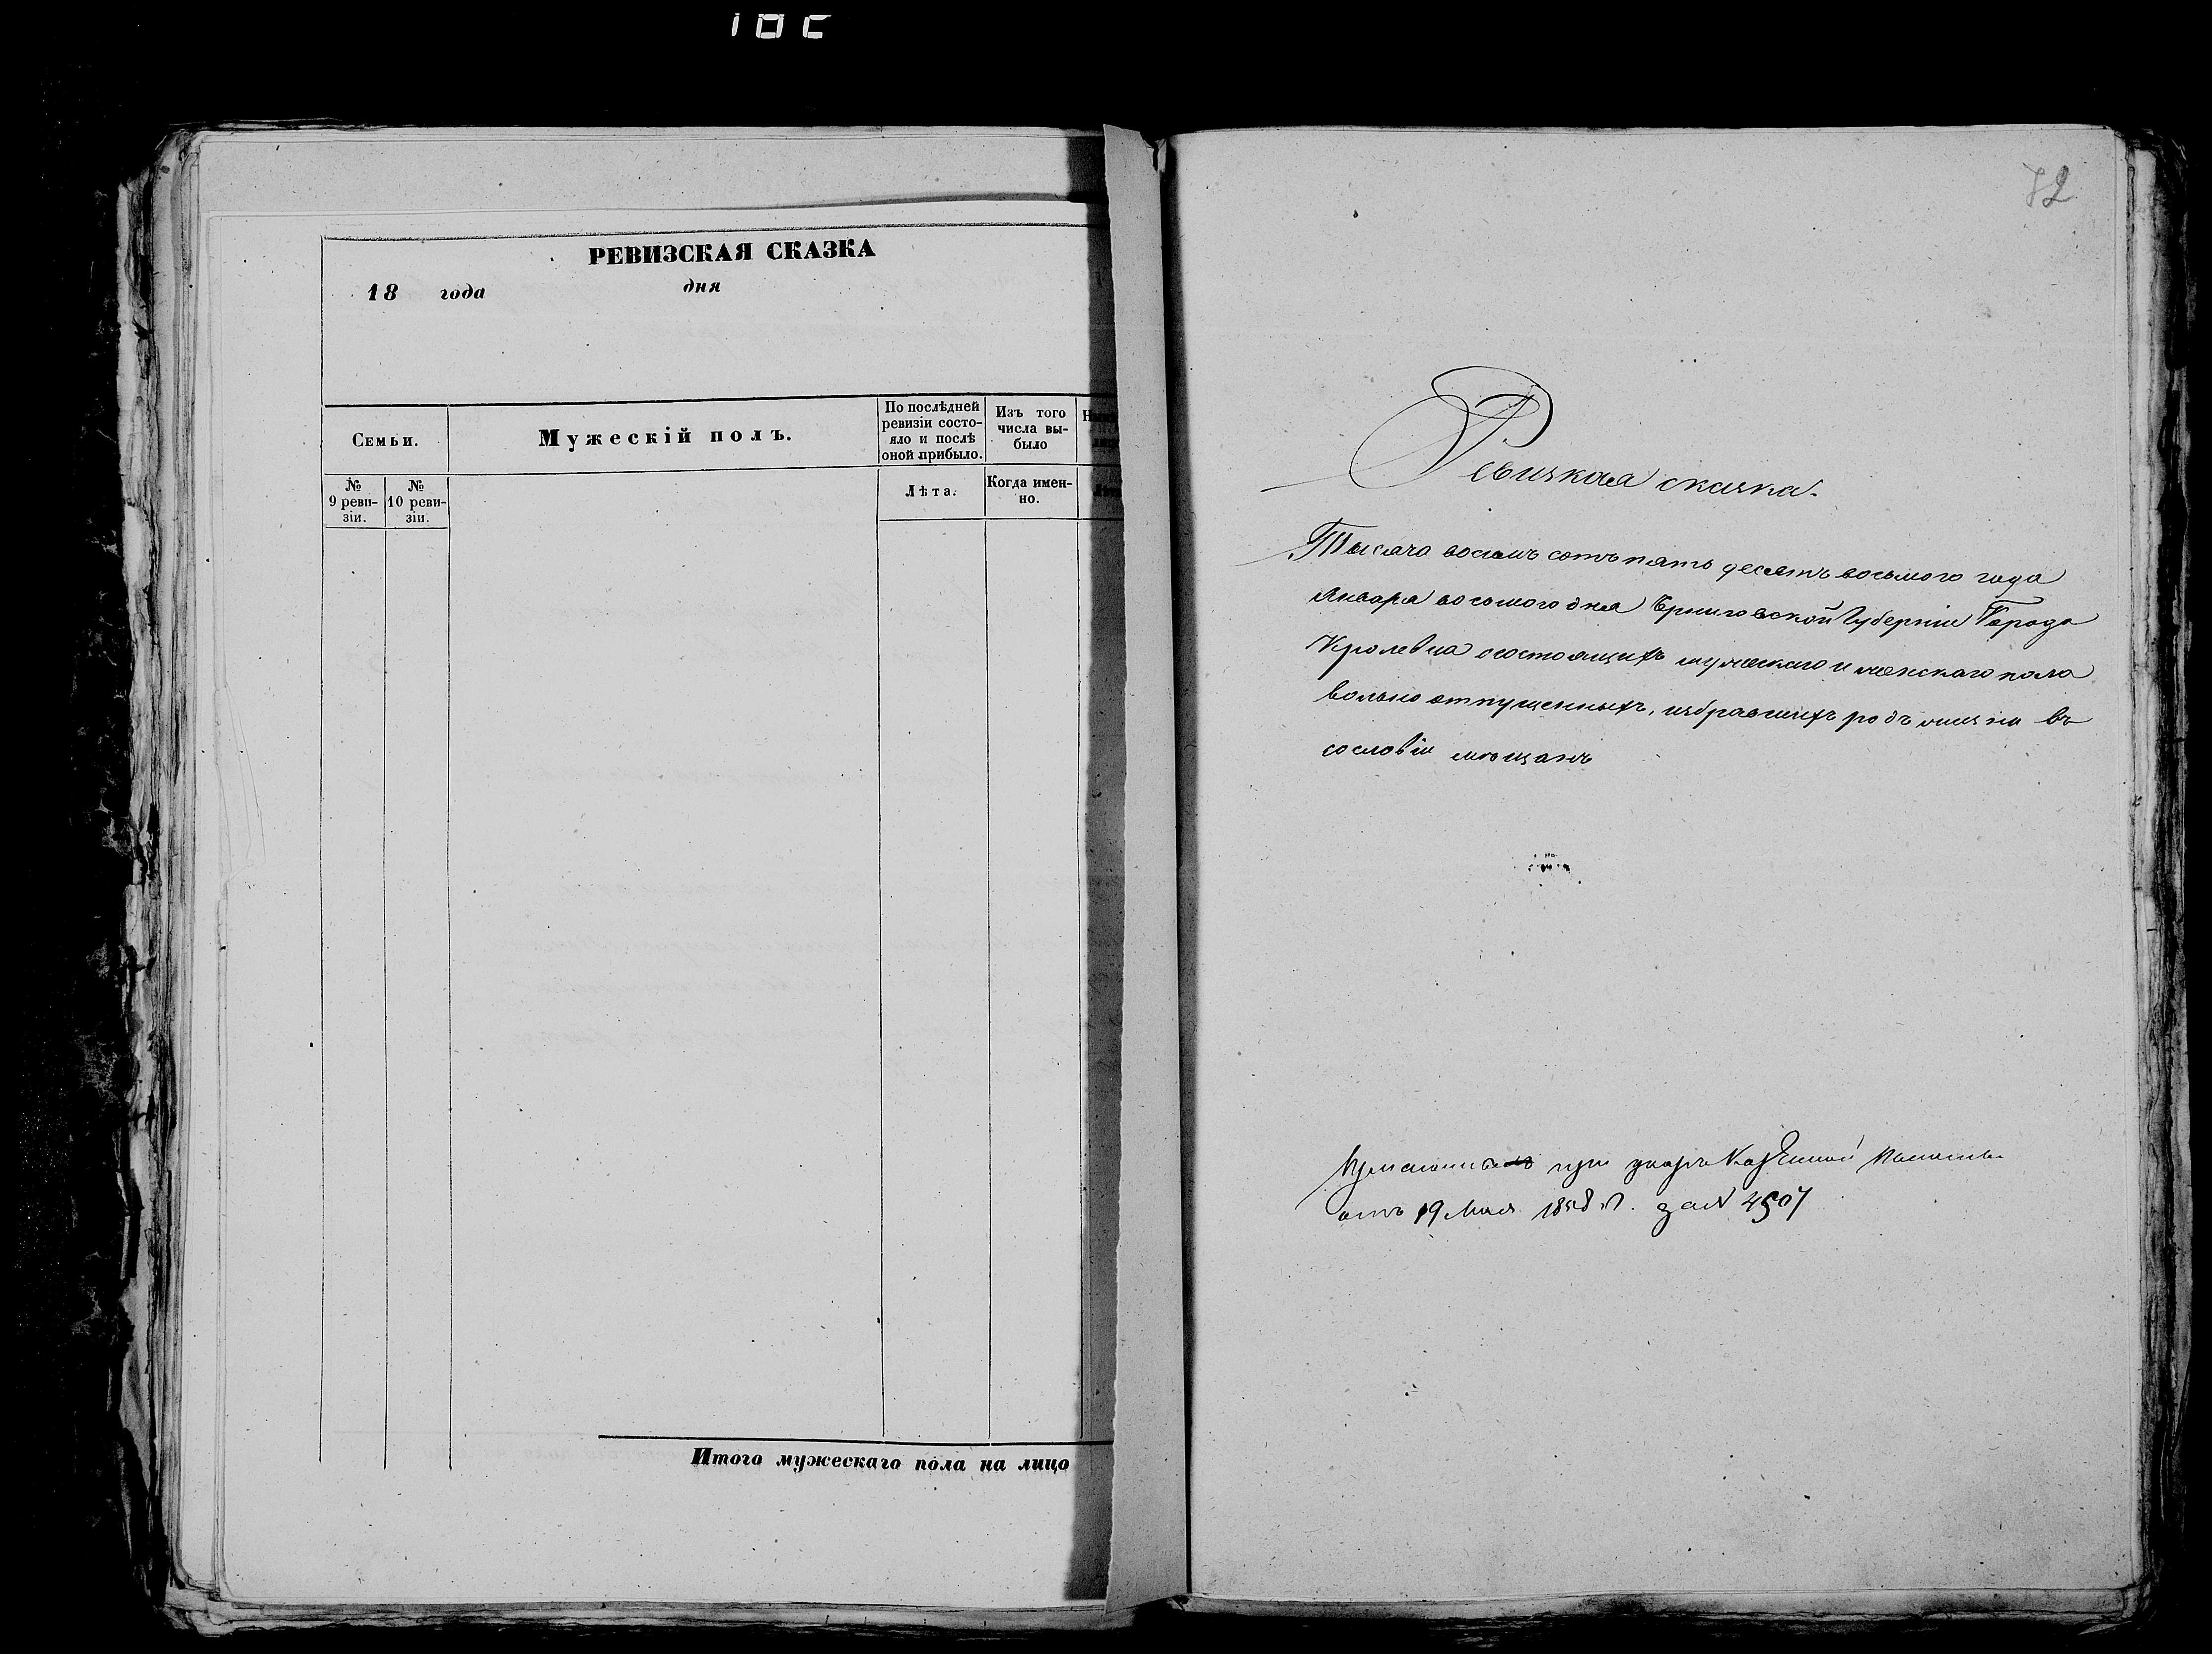 РЕВИЗСКАЯ СКАЗКА
18 года дня
Семьи.
Мужескій полъ.
По послѣдней
ревизіи состо-
яло и послѣ
оной прибыло.
Изъ того
числа вы-
было
№
9 реви-
зіи.
№
10 реви-
зіи.
Лѣта.
Когда имен-
но.
Итого мужескаго пола на лицо
72
Ревизкая сказка.
Тысяча восемь сотъ пять десятъ восьмого года
Января восьмого дня Черниговской Губерніи Города
Кролевца состоящихъ мужескаго и женскаго пола
вольно отпущенныхъ, избравшихъ родъ жизни въ
сословіи мѣщанъ
при указѣ Казенной Палаты
отъ 19 Мая 1858 г. за № 4507